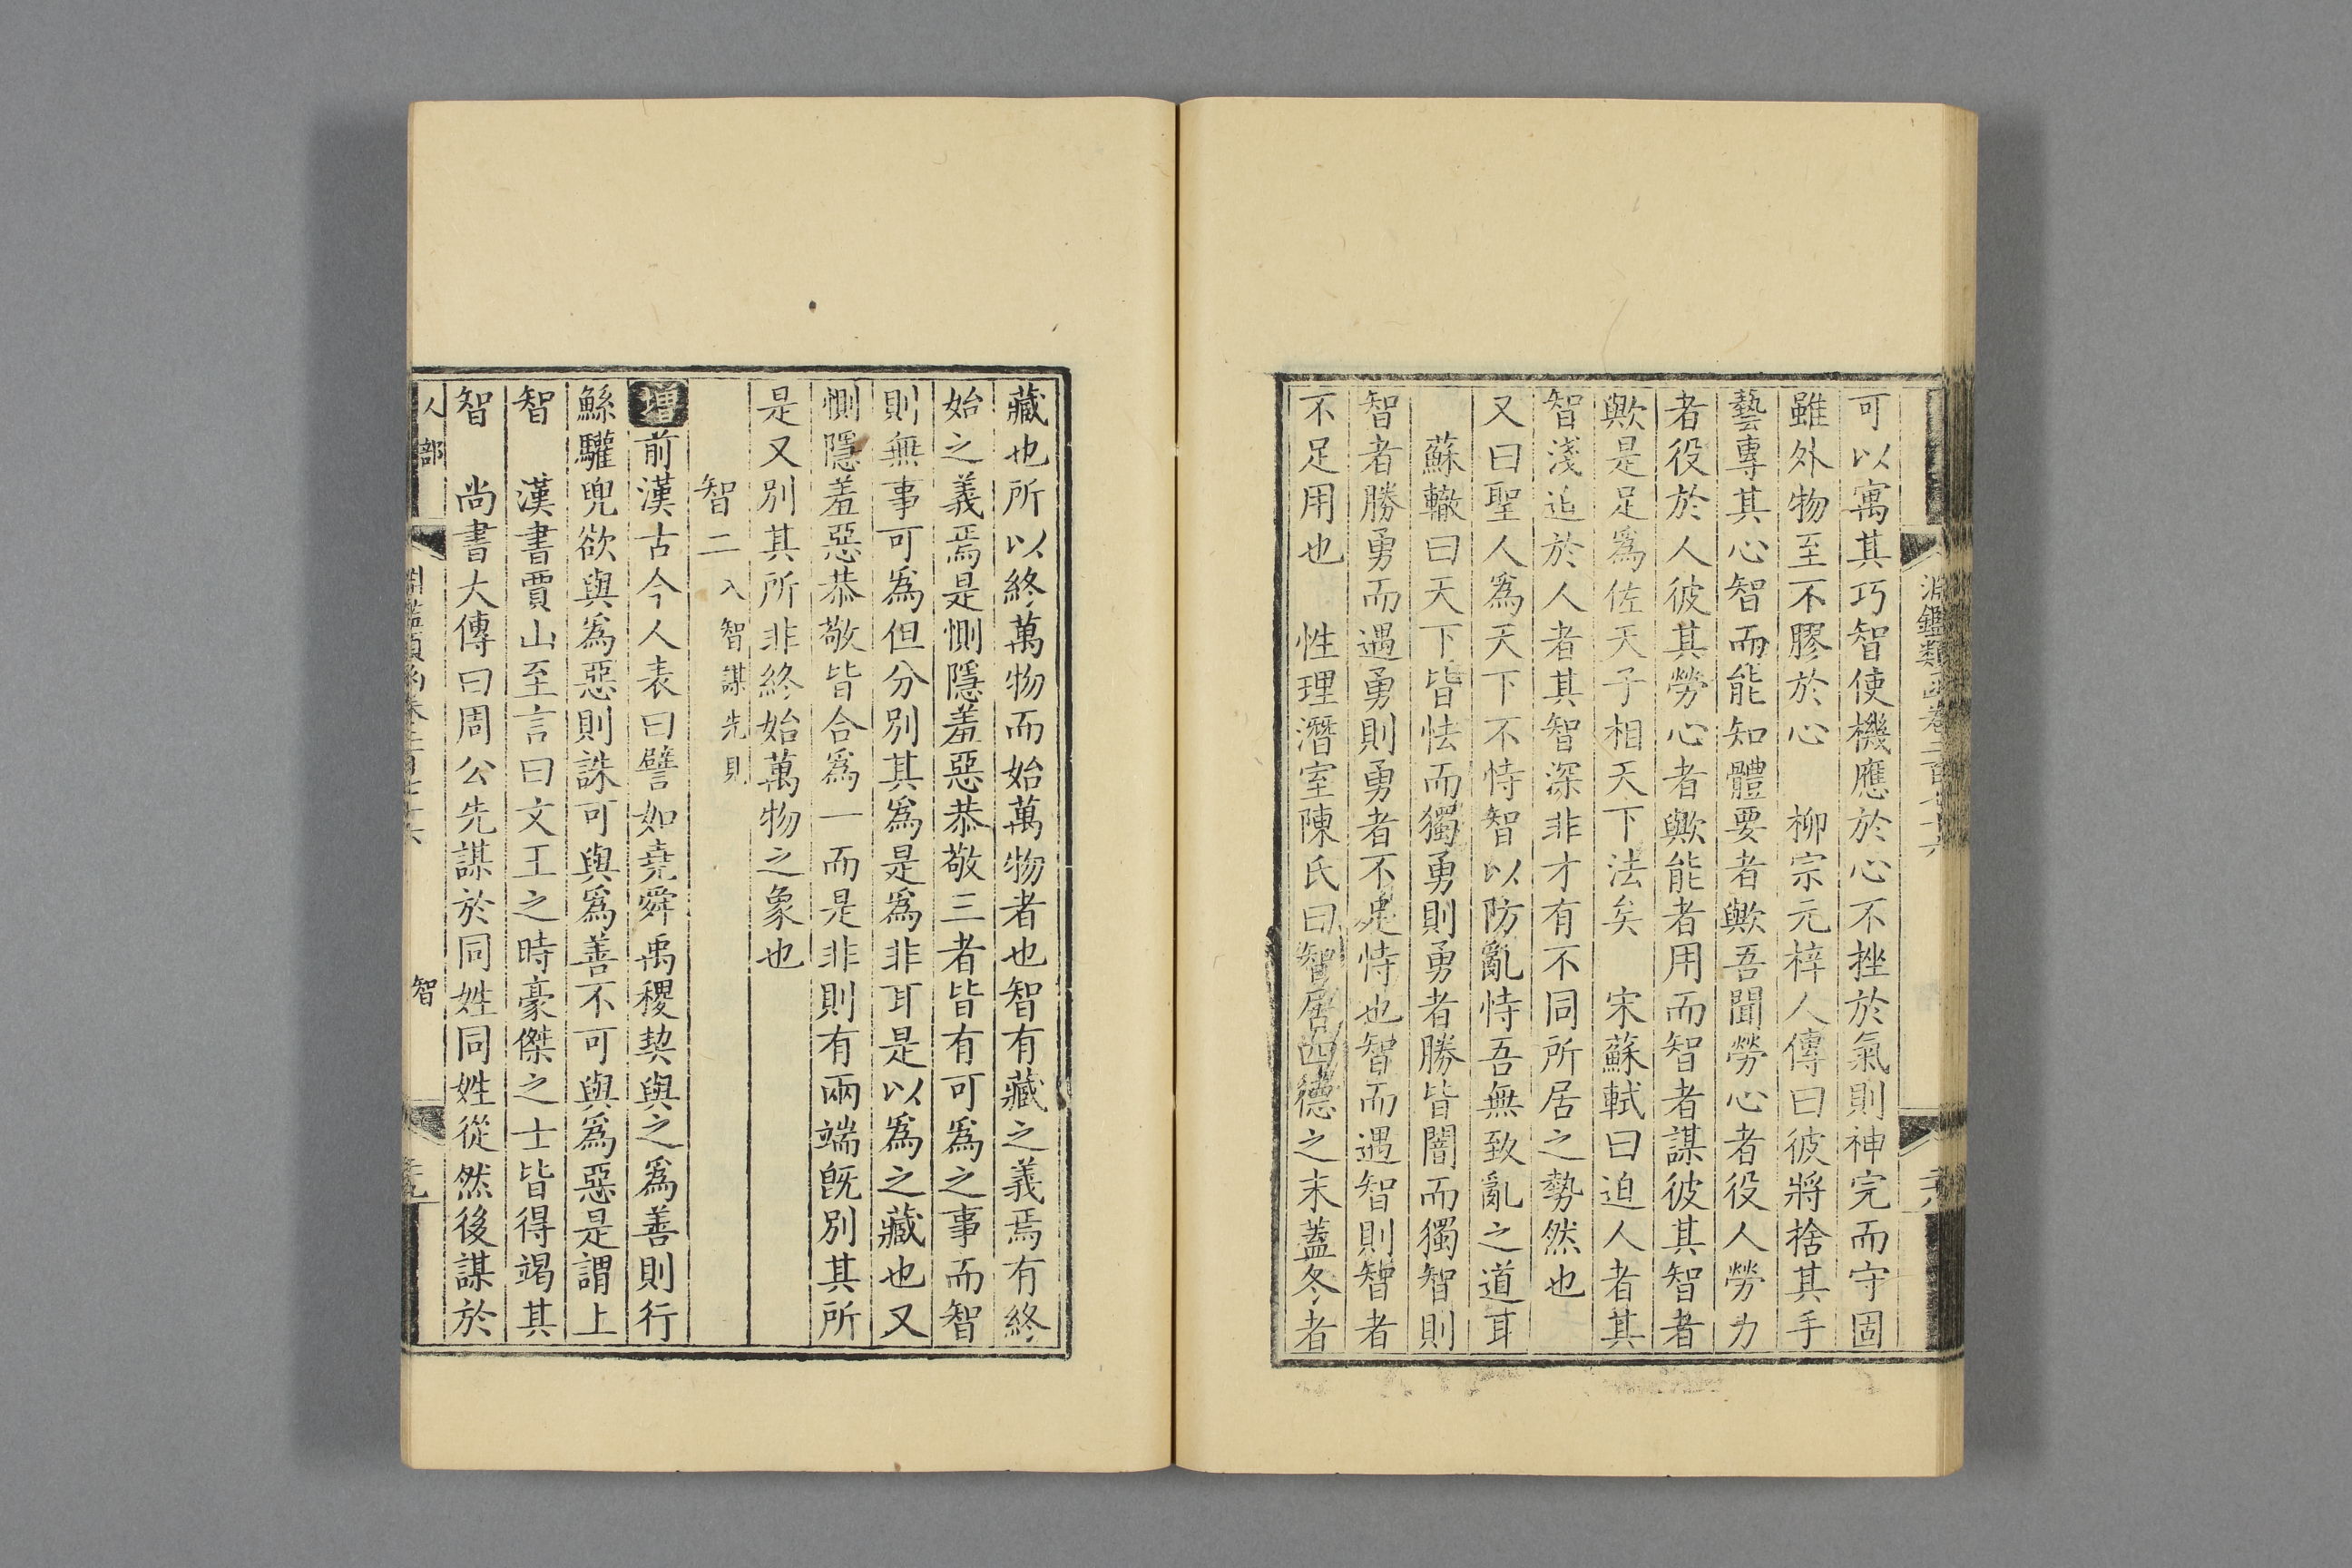 淵鑑類函卷二百七十六
可以寓其巧智使機應於心不挫於氣則神完而守固
雖外物至不膠於心　柳宗元梓人傳曰彼將捨其手
藝專其心智而能知體要者歟吾聞勞心者役人勞力
者役於人彼其勞心者歟能者用而智者謀彼其智者
歟是足爲佐天子相天下法矣　宋蘇軾曰迫人者其
智淺迫於人者其智深非才有不同所居之勢然也
又曰聖人爲天下不恃智以防亂恃吾無致亂之道耳
蘇轍曰天下皆怯而獨勇則勇者勝皆闇而獨智則
智者勝勇而遇勇則勇者不足恃也智而遇智則智者
不足用也　性理潛室陳氏曰智居四德之末蓋冬者
藏也所以終萬物而始萬物者也智有藏之義焉有終
始之義焉是惻隱羞惡恭敬三者皆有可爲之事而智
則無事可爲但分別其爲是爲非耳是以爲之藏也又
惻隱羞惡恭敬皆合爲一而是非則有兩端既別其所
是又別其所非終始萬物之象也
智二 入智謀先見
增前漢古今人表曰譬如堯舜禹稷契與之爲善則行
鯀驩兜欲與爲惡則誅可與爲善不可與爲惡是謂上
智　漢書賈山至言曰文王之時豪傑之士皆得竭其
智　尚書大傳曰周公先謀於同姓同姓從然後謀於
人部 淵鑑類函卷二百七十六 智